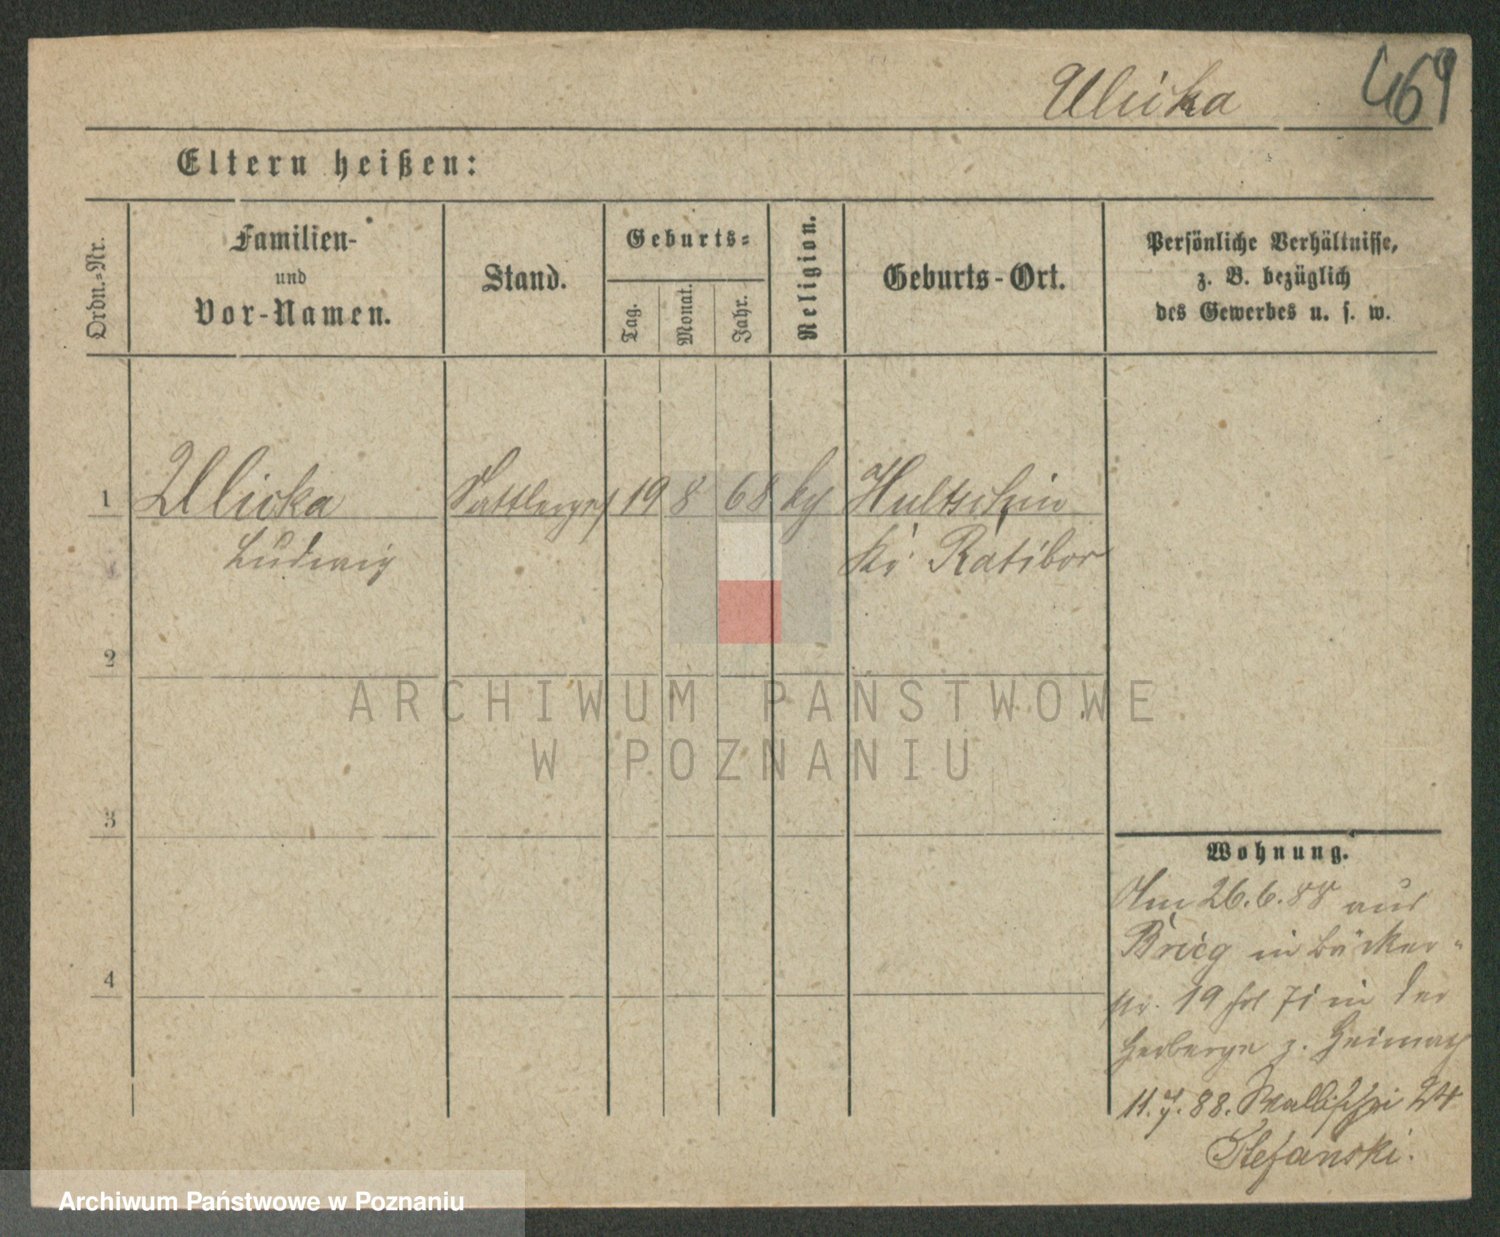 Ulicka 469
Eltern heißen:
Ordn.-Nr.
Familien-
und
Vor-Namen.
Stand.
Geburts-
Tag.
Monat.
Jahr.
Religion.
Geburts-Ort.
Persönliche Verhältnisse,
z. B. bezüglich
des Gewerbes u. s. w.
1 Ulicka Sattlerges 19 8 68 kg Hultschin
Ludwig Kr. Ratibor
2
3
4
Wohnung.
Am 26.6.88 aus
Brieg in Bäcker-
str. 19 in der
Herberge z. Heimath
11.7.88. Wallischei 24
Stefanski.
ARCHIWUM PAŃSTWOWE
W POZNANIU
Archiwum Państwowe w Poznaniu